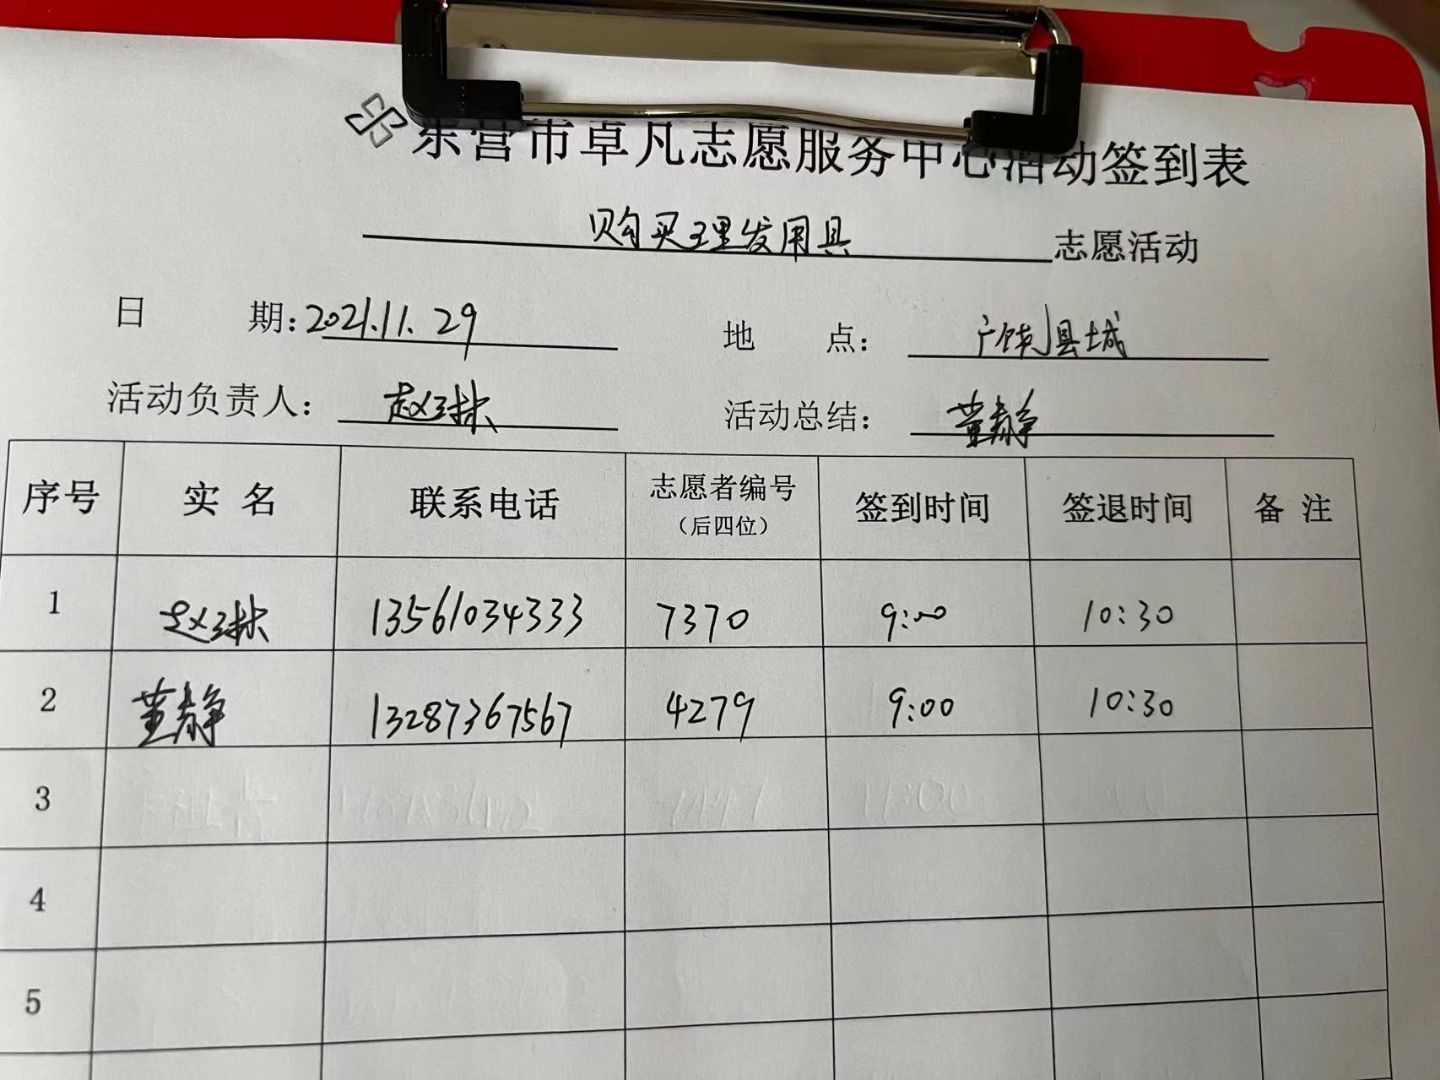 东营市卓凡志愿服务中心活动签到表
购买理发用具 志愿活动
日 期: 2021.11.29 地 点: 广饶县城
活动负责人: 赵 活动总结: 董静
序号 实名 联系电话 志愿者编号 (后四位) 签到时间 签退时间 备注
1 赵 13561034333 7370 9:00 10:30
2 董静 13287367567 4279 9:00 10:30
3
4
5